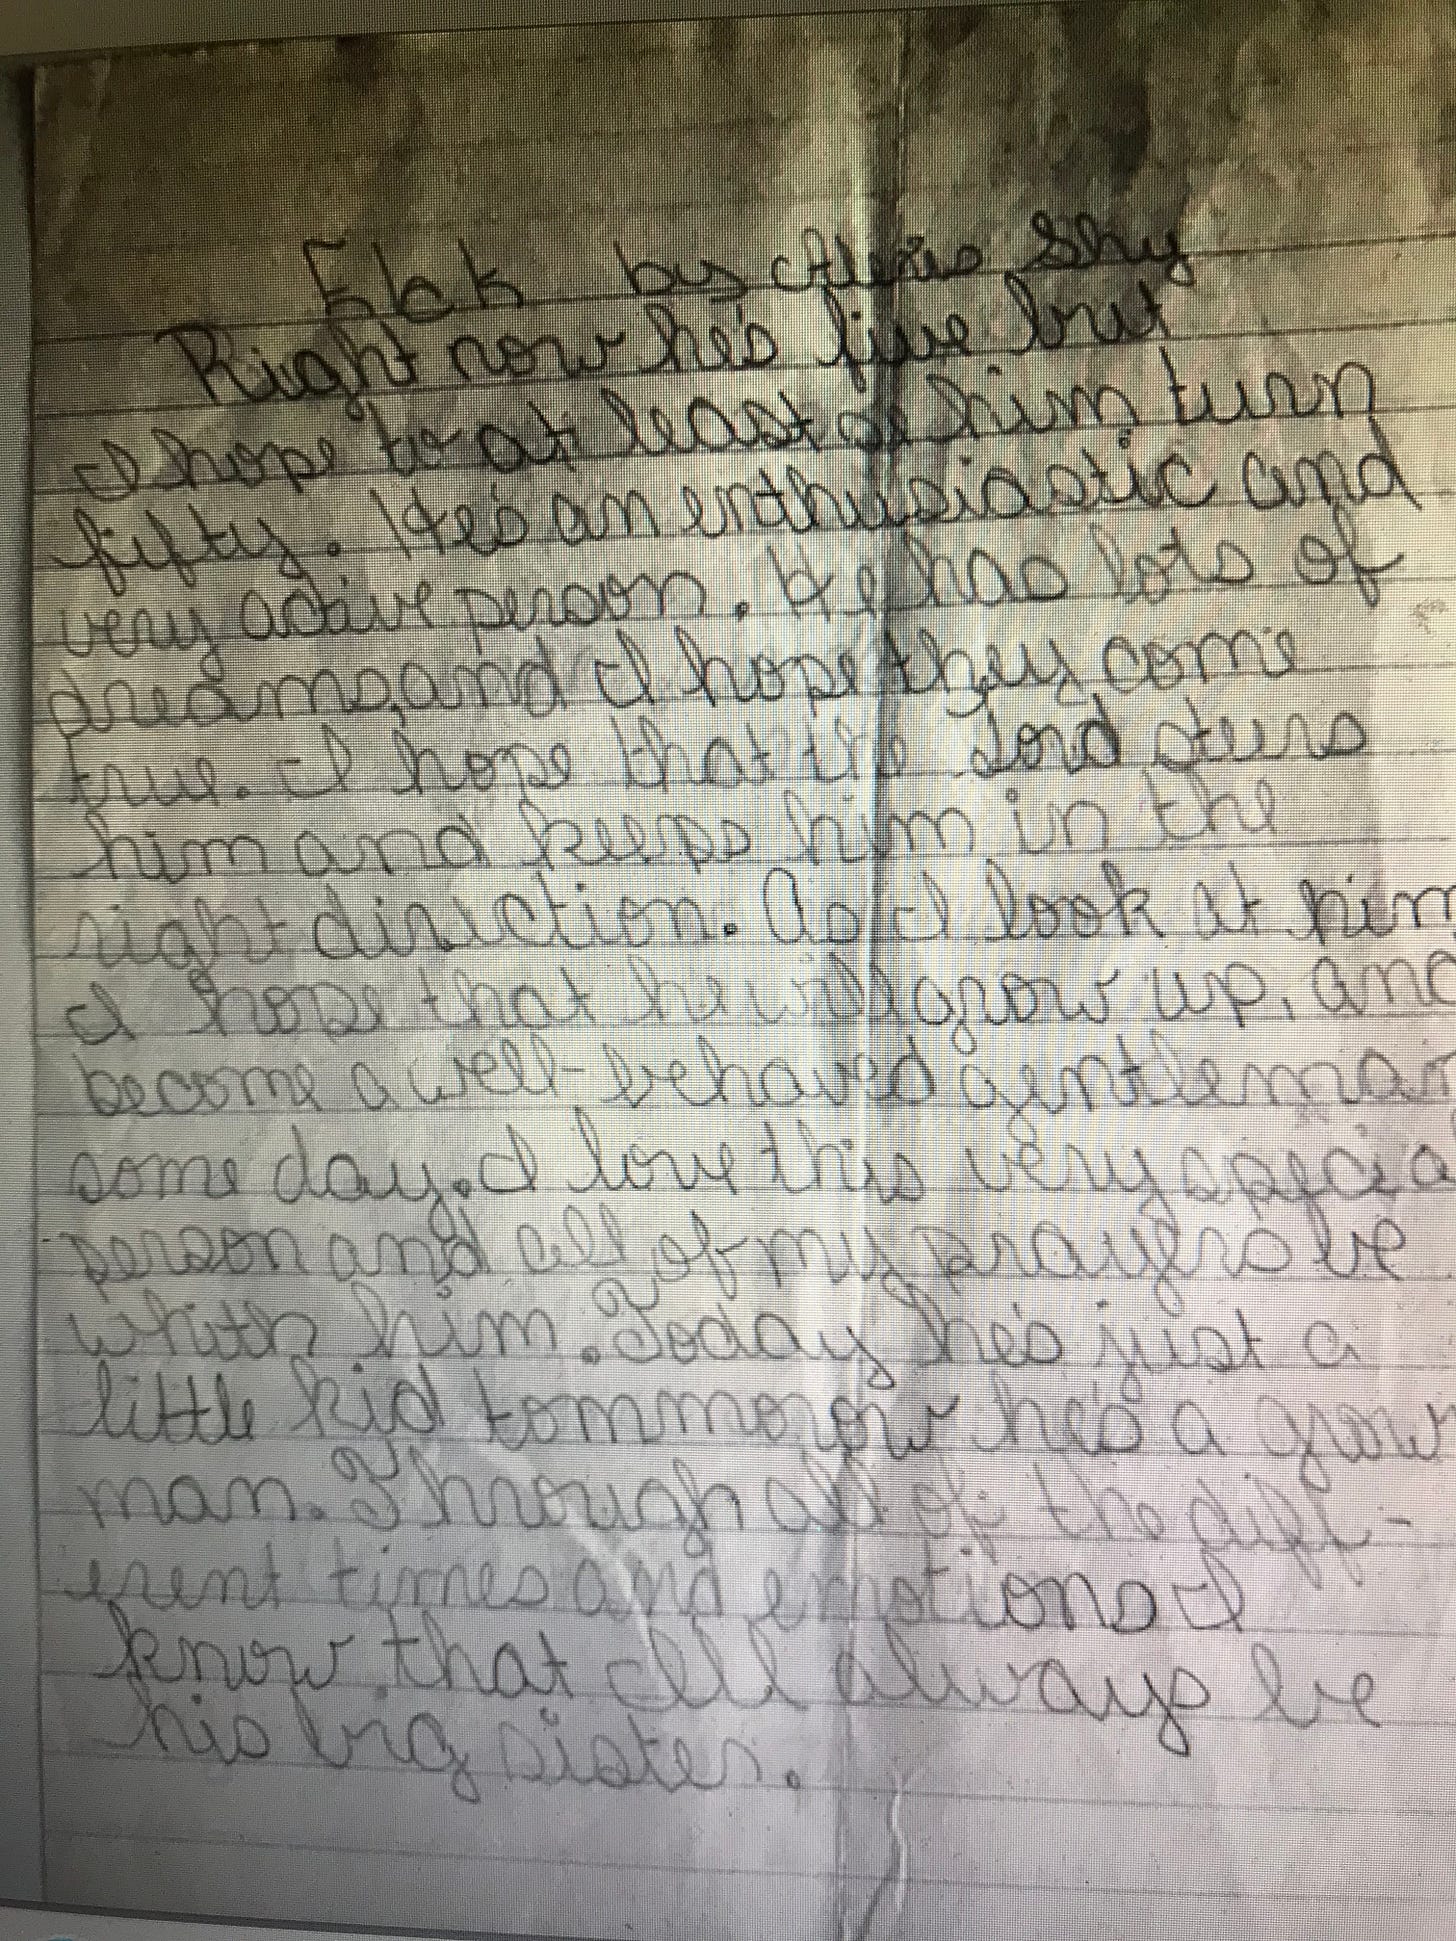 by Alexis Shy
Right now he's five but
I hope to at least of him turn
fifty. He's an enthusiastic and
very active person. He has lots of
dreams, and I hope they come
true. I hope that the Lord sters
him and keeps him in the
right diriction. As I look at him
I hope that he will grow up, and
become a well-behaved gentleman
some day. I love this very special
person and all of my prayers be
whith him. Today he's just a
little kid tommorow he's a grown
man. Through all of the diff-
erent times and emotions I
know that I'll always be
his big sister.